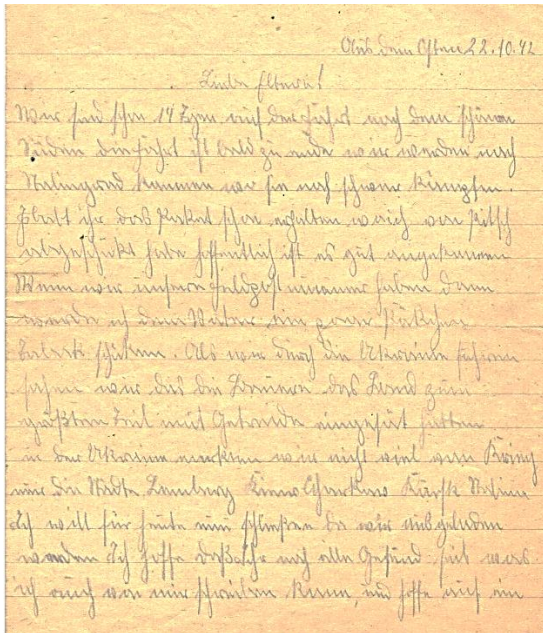 Aus dem Osten 22.10.42
Liebe Eltern!
Wir sind schon 14 Tgen auf der Fahrt nach dem schönen
Süden die Fahrt ist bald zu ende wir werden nach
Stalingrad kommen wo sie noch schwer kämpfen.
Habt ihr das Paket schon erhalten wo ich von Kitsch
abgeschikt habe hoffentlich ist es gut angekommen
Wenn wir unsere Feldpostnummer haben dann
werde ich dem Vater ein paar Päkchen
Tabak schiken. Als wir durch die Ukraine fuhren
sahen wir das die Bauern das Land zum
größten Teil mit Getreide eingesät hatten
in der Ukraine merkten wir nicht viel vom Krieg
nur die Städte Lemberg Kiew Charkow Kursk
Ich will für heute nun schließen da wir ausgeladen
werden Ich hoffe daß ihr noch alle Gesund seit was
ich auch von mir schreiben kann, und hoffe auf ein